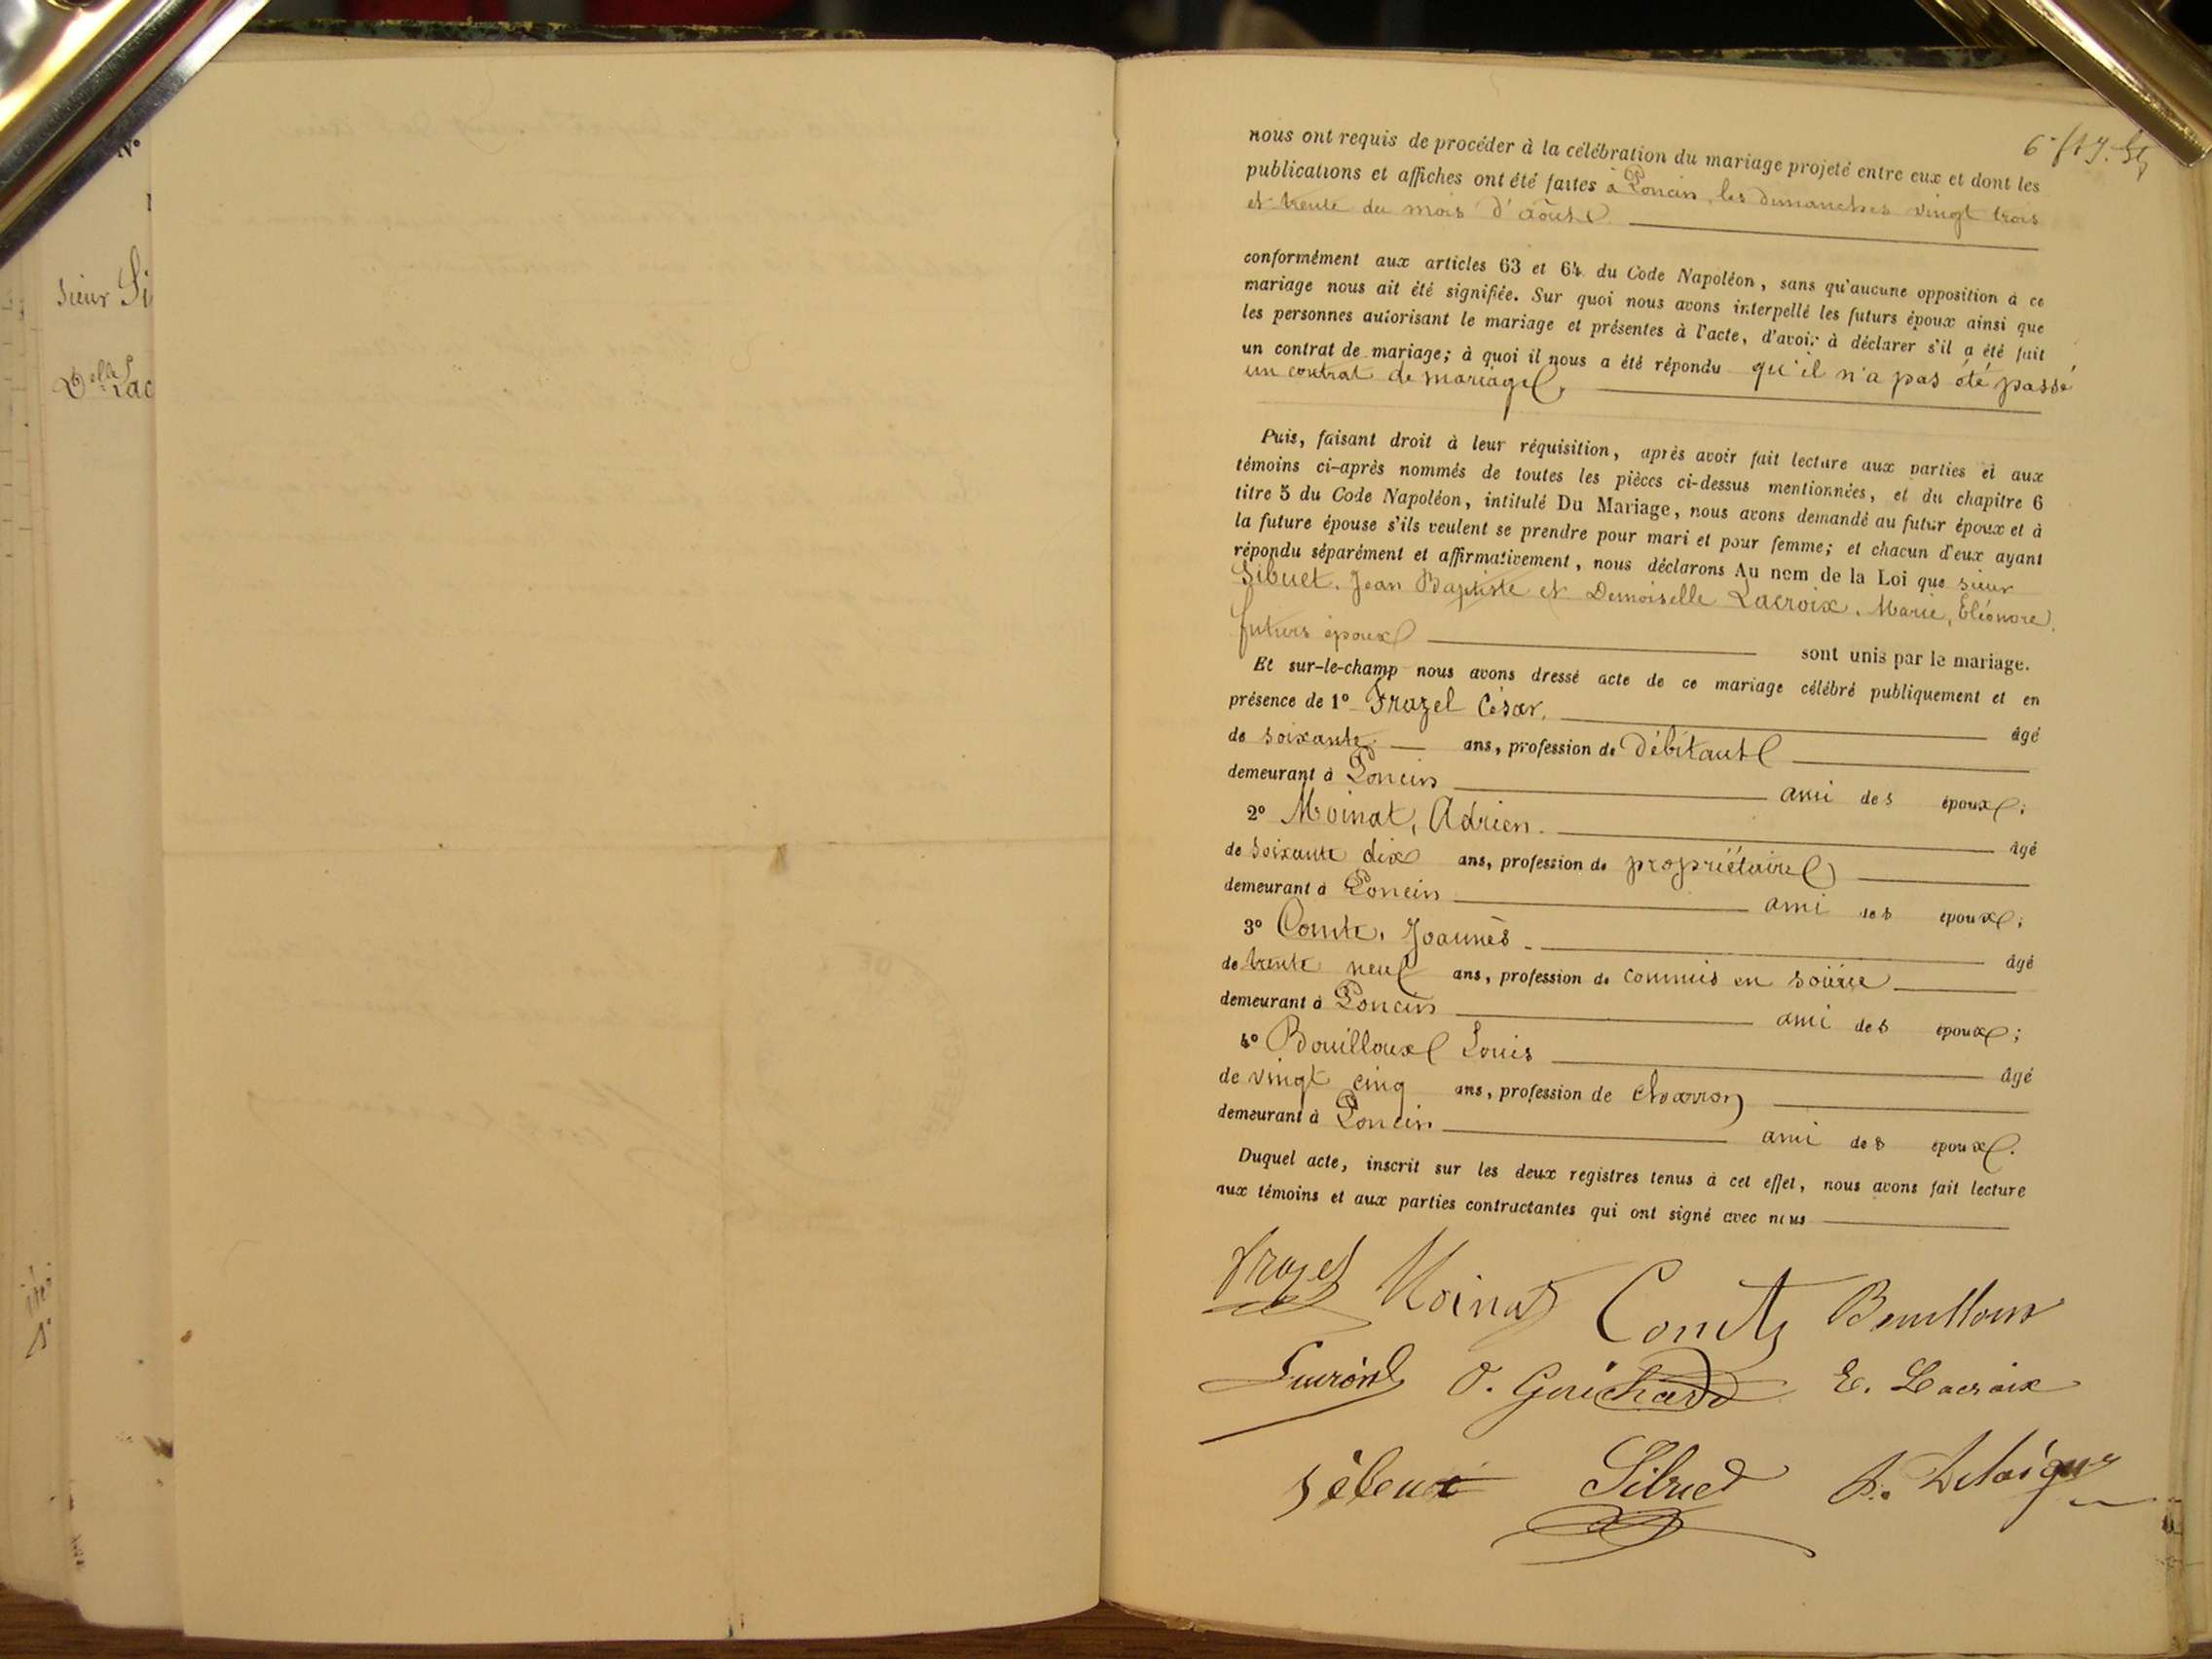 N°
Sieur Si
Delle Lac
nous ont requis de procéder à la célébration du mariage projeté entre eux et dont les
publications et affiches ont été faites à Poncin, les dimanches vingt trois
et trente du mois d'août
conformément aux articles 63 et 64 du Code Napoléon, sans qu'aucune opposition à ce
mariage nous ait été signifiée. Sur quoi nous avons interpellé les futurs époux ainsi que
les personnes autorisant le mariage et présentes à l'acte, d'avoir à déclarer s'il a été fait
un contrat de mariage; à quoi il nous a été répondu qu'il n'a pas été passé
un contrat de mariage.
Puis, faisant droit à leur réquisition, après avoir fait lecture aux parties et aux
témoins ci-après nommés de toutes les pièces ci-dessus mentionnées, et du chapitre 6
titre 5 du Code Napoléon, intitulé Du Mariage, nous avons demandé au futur époux et à
la future épouse s'ils veulent se prendre pour mari et pour femme; et chacun d'eux ayant
répondu séparément et affirmativement, nous déclarons Au nom de la Loi que sieur
Sibuet. Jean Baptiste et Demoiselle Lacroix. Marie, Eléonore.
futurs époux sont unis par le mariage.
Et sur-le-champ nous avons dressé acte de ce mariage célébré publiquement et en
présence de 1° Frazel César, âgé
de soixante ans, profession de Débitant
demeurant à Poncin ami des époux;
2° Moinat, Adrien. âgé
de soixante dix ans, profession de propriétaire
demeurant à Poncin ami des époux;
3° Comte. Joannès. âgé
de trente neuf ans, profession de commis en soierie
demeurant à Poncin ami des époux;
4° Bouilloux Louis âgé
de vingt cinq ans, profession de charron
demeurant à Poncin ami des époux.
Duquel acte, inscrit sur les deux registres tenus à cet effet, nous avons fait lecture
aux témoins et aux parties contractantes qui ont signé avec nous
frazel Moinat Comte Bouilloux
O. Guichard E. Lacroix
Sibuet